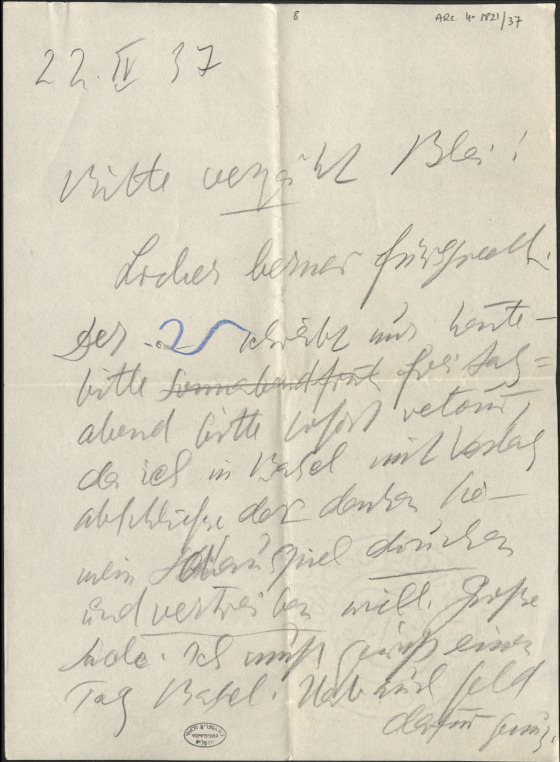 8
ARC 4o 1821/37
22. IV 37
Bitte verzeiht Blei!
Locher berner Fürsprech.
Der schreibt mir heute –
bitte Sonnabend früh freitag =
abend bitte sofort retour,
da ich in Basel mit Verlag
abschließe der denken Sie –
mein Schauspiel drucken
und vertreiben will. Große
Sache. Ich muß einen
Tag Basel. Hab auch Geld
dafür genug.